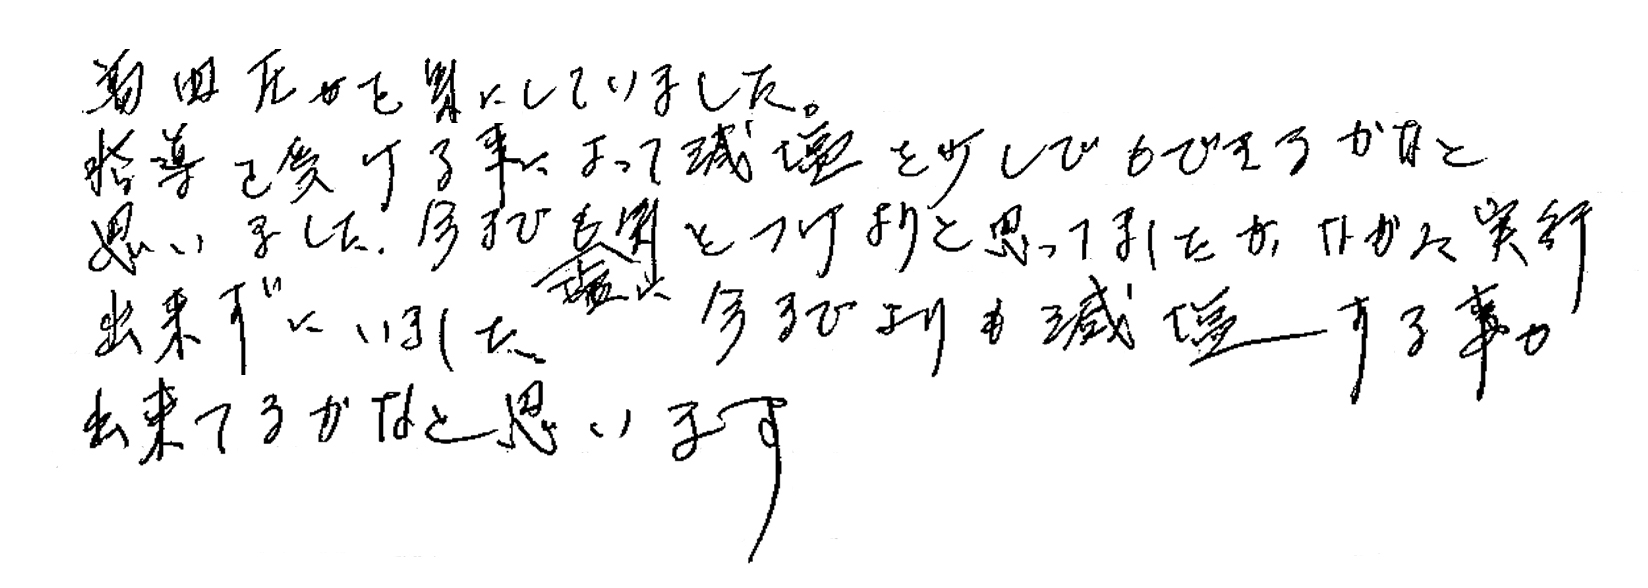 を気にしていました。
指導を受ける事によって減塩を少しでもできるかなと
思いました.今までも気をつけようと思ってましたが、なかなか実行
塩に
出来ずにいました、今までよりも減塩する事が
出来てるかなと思います